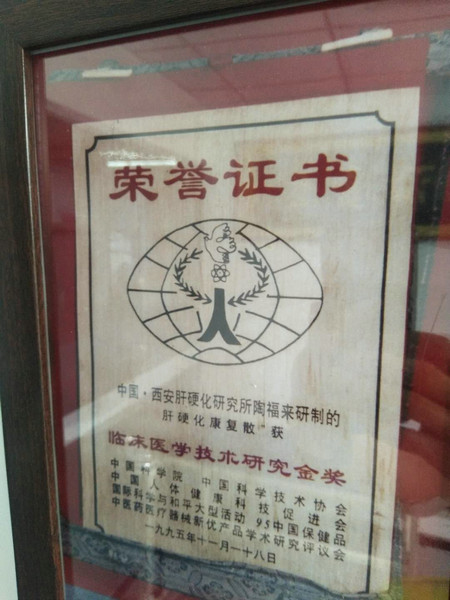 荣誉证书
中国·西安肝硬化研究所陶福来研制的
肝硬化康复散"获
临床医学技术研究金奖
中国科学院 中国科学技术协会
中国人体健康科技促进会
国际科学与和平大型活动 95中国保健品
中医药医疗器械新优产品学术研究评议会
一九九五年十一月一十八日